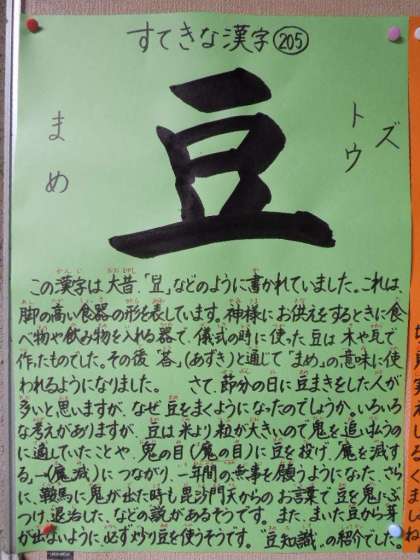 すてきな漢字 205
豆
まめ
トウ
ズ
この漢字は大昔、「豆」などのように書かれていました。これは、
脚の高い食器の形を表しています。神様にお供えをするときに食
べ物や飲み物を入れる器で、儀式の時に使った豆は木や瓦で
作ったものでした。その後「荅」(あずき)と通じて「まめ」の意味に使
われるようになりました。 さて、節分の日に豆まきをした人が
多いと思いますが、なぜ豆をまくようになったのでしょうか。いろいろ
な考えがありますが、豆は米より粒が大きいので鬼を追い払うの
に適していたことや、鬼の目(魔の目)に豆を投げ、魔を滅す
る→(魔滅)につながり、一年間の無事を願うようになった、さら
に、鞍馬に鬼が出た時も毘沙門天からのお言葉で豆を鬼にぶ
つけ、退治した、などの説があるそうです。また、まいた豆から芽
が出ないように必ず炒り豆を使うそうです。 豆知識の紹介でした。